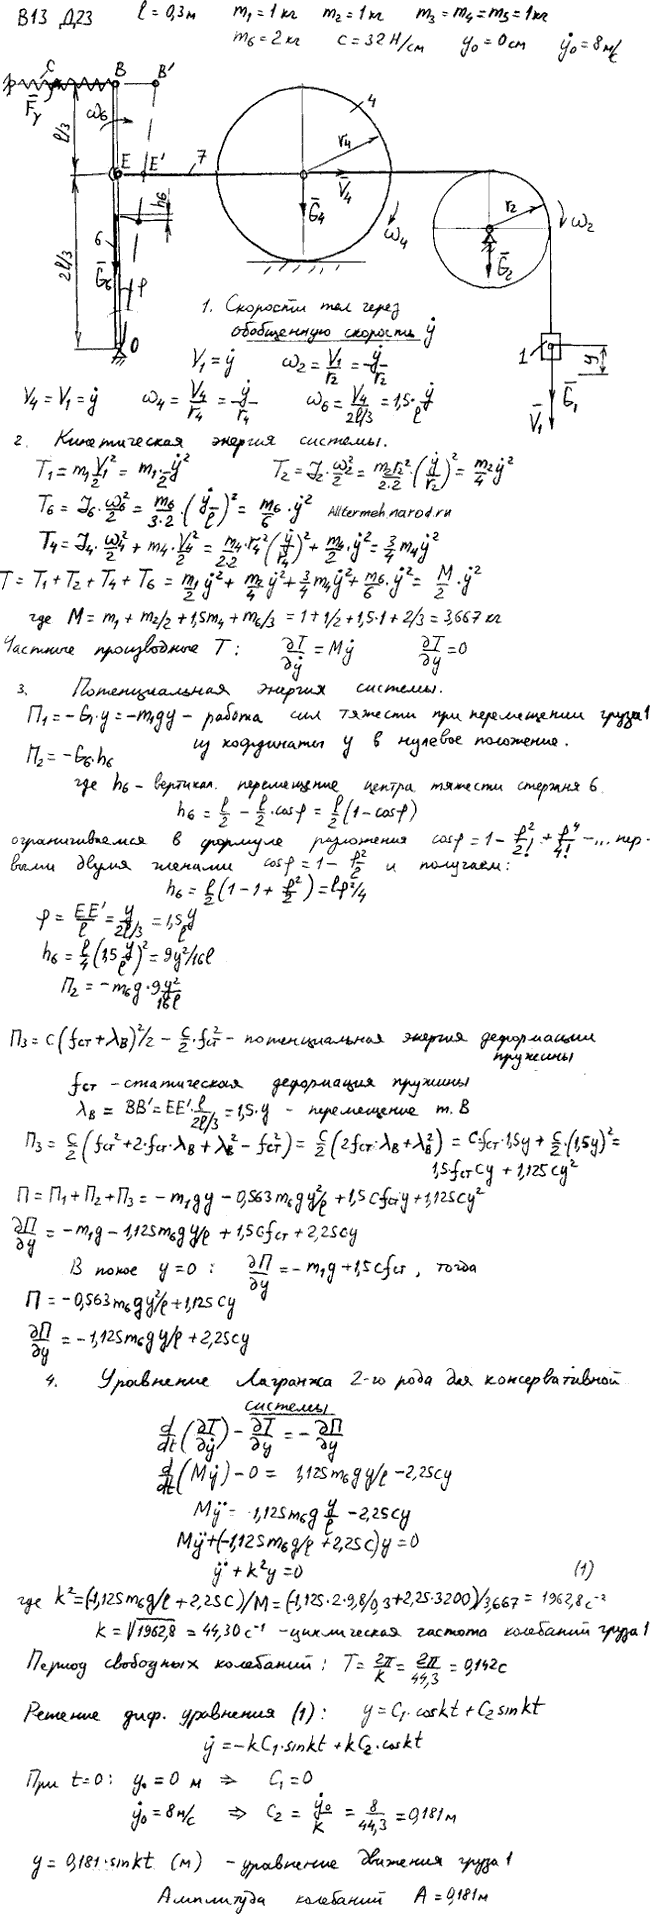 В13 Д23 l = 0,3м m₁ = 1 кг m₂ = 1 кг m₃ = m₄ = m₅ = 1 кг
m₆ = 2 кг c = 32 Н/см y₀ = 0 см ẏ₀ = 8 м/с
C B B' 4
F̄у ω₆ r₄
l/3 E E' 7 V̄₄ r₂
h₆ Ḡ₄ ω₄ ω₂
6 Ḡ₆ Ḡ₂
2l/3 φ
O 1 y
Ḡ₁
V̄₁
1. Скорости тел через
обобщенную скорость ẏ
V₁ = ẏ ω₂ = V₁/r₂ = ẏ/r₂
V₄ = V₁ = ẏ ω₄ = V₄/r₄ = ẏ/r₄ ω₆ = V₄/(2l/3) = 1,5·ẏ/l
2. Кинетическая энергия системы.
T₁ = m₁V₁²/2 = m₁·ẏ²/2 T₂ = J₂·ω₂²/2 = m₂r₂²/(2·2)·(ẏ/r₂)² = m₂/4 ẏ²
T₆ = J₆·ω₆²/2 = m₆/(3·2)·(ẏ/l)² = m₆/6·ẏ² Alltermeh.narod.ru
T₄ = J₄·ω₄²/2 + m₄·V₄²/2 = m₄·r₄²/(2·2)(ẏ/r₄)² + m₄/2·ẏ² = 3/4 m₄ẏ²
T = T₁ + T₂ + T₄ + T₆ = m₁/2 ẏ² + m₂/4 ẏ² + 3/4 m₄ẏ² + m₆/6·ẏ² = M/2·ẏ²
где M = m₁ + m₂/2 + 1,5m₄ + m₆/3 = 1 + 1/2 + 1,5·1 + 2/3 = 3,667 кг
Частные производные T: ∂T/∂ẏ = Mẏ ∂T/∂y = 0
3. Потенциальная энергия системы.
П₁ = -G₁·y = -m₁gy - работа сил тяжести при перемещении груза 1
из координаты y в нулевое положение.
П₂ = -G₆·h₆
где h₆ - вертикал. перемещение центра тяжести стержня 6.
h₆ = l/2 - l/2·cosφ = l/2(1 - cosφ)
ограничиваемся в формуле разложения cosφ = 1 - φ²/2! + φ⁴/4! - ... пер-
выми двумя членами cosφ = 1 - φ²/2 и получаем:
h₆ = l/2(1 - 1 + φ²/2) = lφ²/4
φ = EE'/l = y/(2l/3) = 1,5 y/l
h₆ = l/4(1,5 y/l)² = 9y²/16l
П₂ = -m₆g·9y²/16l
П₃ = c(fст + λB)²/2 - c/2·fст² - потенциальная энергия деформации
пружины
fст - статическая деформация пружины
λB = BB' = EE'·l/(2l/3) = 1,5·y - перемещение т. B
П₃ = c/2(fст² + 2·fст·λB + λB² - fст²) = c/2(2fст·λB + λB²) = c·fст·1,5y + c/2·(1,5y)² =
1,5·fст cy + 1,125cy²
П = П₁ + П₂ + П₃ = -m₁gy - 0,563m₆gy²/l + 1,5cfстy + 1,125cy²
∂П/∂y = -m₁g - 1,125m₆gy/l + 1,5cfст + 2,25cy
В покое y = 0: ∂П/∂y = -m₁g + 1,5cfст, тогда
П = -0,563m₆gy²/l + 1,125cy
∂П/∂y = -1,125m₆gy/l + 2,25cy
4. Уравнение Лагранжа 2-го рода для консервативной
системы
d/dt(∂T/∂ẏ) - ∂T/∂y = -∂П/∂y
d/dt(Mẏ) - 0 = 1,125m₆gy/l - 2,25cy
Mÿ = 1,125m₆g y/l - 2,25cy
Mÿ + (-1,125m₆g/l + 2,25c)y = 0
ÿ + k²y = 0 (1)
где k² = (-1,125m₆g/l + 2,25c)/M = (-1,125·2·9,8/0,3 + 2,25·3200)/3,667 = 1962,8 с⁻²
k = √1962,8 = 44,30 с⁻¹ - циклическая частота колебаний груза 1
Период свободных колебаний: T = 2π/k = 2π/44,3 = 0,142с
Решение диф. уравнения (1): y = C₁·coskt + C₂sinkt
ẏ = -kC₁·sinkt + kC₂·coskt
При t = 0: y₀ = 0 м ⇒ C₁ = 0
ẏ₀ = 8 м/с ⇒ C₂ = ẏ₀/k = 8/44,3 = 0,181 м
y = 0,181·sinkt (м) - уравнение движения груза 1
Амплитуда колебаний A = 0,181м